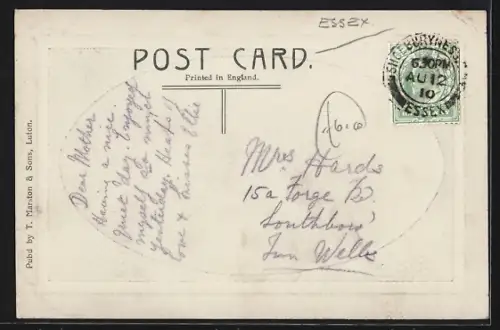 ESSEX
POST CARD.
Printed in England.
SHOEBURYNESS
6.30PM
AU 12
10
ESSEX
Pubd by T. Marston & Sons, Luton.
Dear Mother
Having a nice
Quiet day. Enjoyed
myself
yesterday. Heaps of
love & kisses Elsie
6
Mrs Hards
15a Forge Rd
Southboro'
Tun Wells